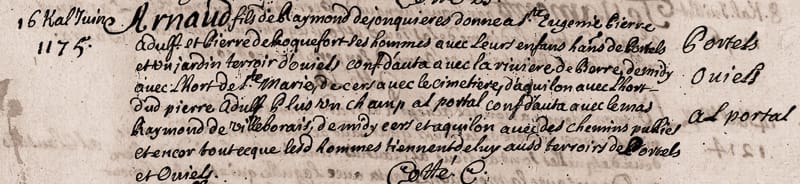 16 Kal Juin Arnaud fils de Raymond de jonquieres donne a Ste Eugenie pierre
1175. aduff et pierre de Roquefort ses hommes avec leurs enfans hans de Portels
et un jardin terroir d'ouiels conf d'auta avec la riviere de Berre, de midy
avec l'hort de Ste Marie, de cers avec le cimetiere, d'aquilon avec l'hort
dud pierre aduff Plus un champ al portal conf d'auta avec le mas
Raymond de villeborais, de midy cers et aquilon avec des chemins publics
et encor tout ce que lesd hommes tiennent de luy ausd terroirs de Portels
et Ouiels.
Cotté C.
Portels
Ouiels
al portal